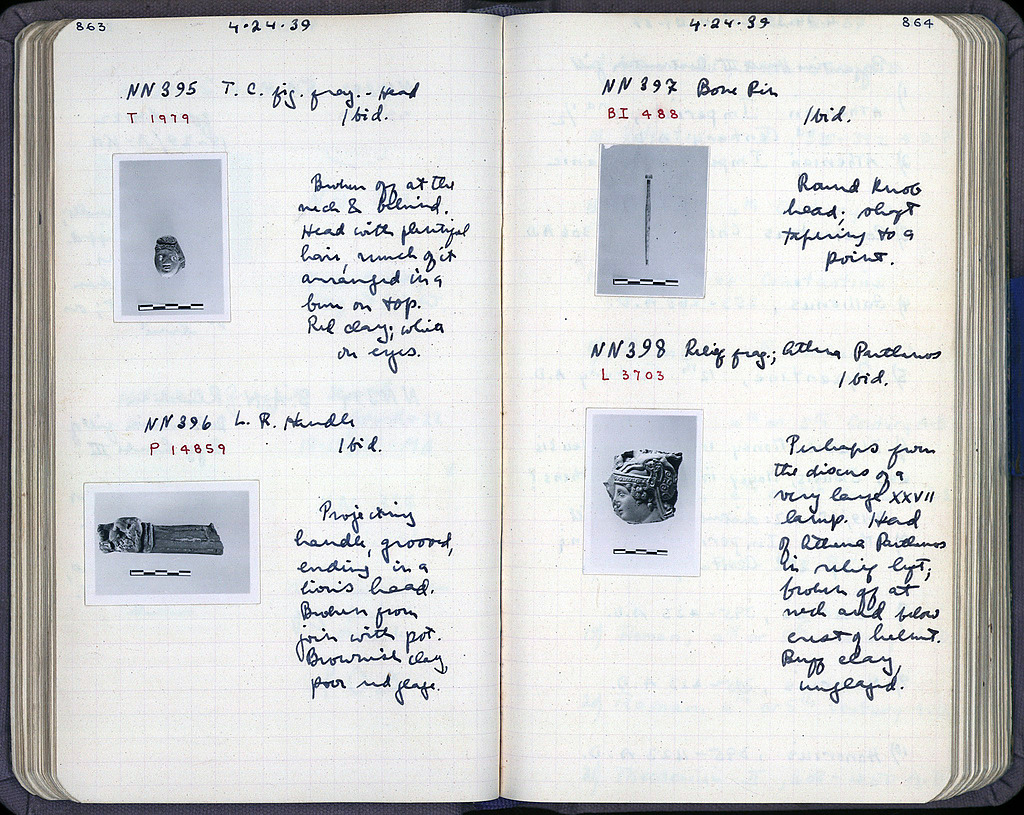 863
4-24-39
NN395 T. C. fig. frag. - Head
T 1979
Ibid.
Broken off at the
neck & behind.
Head with plentiful
hair, much of it
arranged in a
bun on top.
Red clay; white
on eyes.
NN396 L. R. Handle
P 14859
Ibid.
Projecting
handle, grooved,
ending in a
lion's head.
Broken from
join with pot.
Brownish clay,
poor red glaze.
4-24-39
864
NN397 Bone Pin
BI 488
Ibid.
Round knob
head; shaft
tapering to a
point.
NN398 Relief frag.; Athena Parthenos
L 3703
Ibid.
Perhaps from
the discus of a
very large XXVII
lamp. Head
of Athena Parthenos
in relief left;
broken off at
neck and below
crest of helmet.
Buff clay,
unglazed.